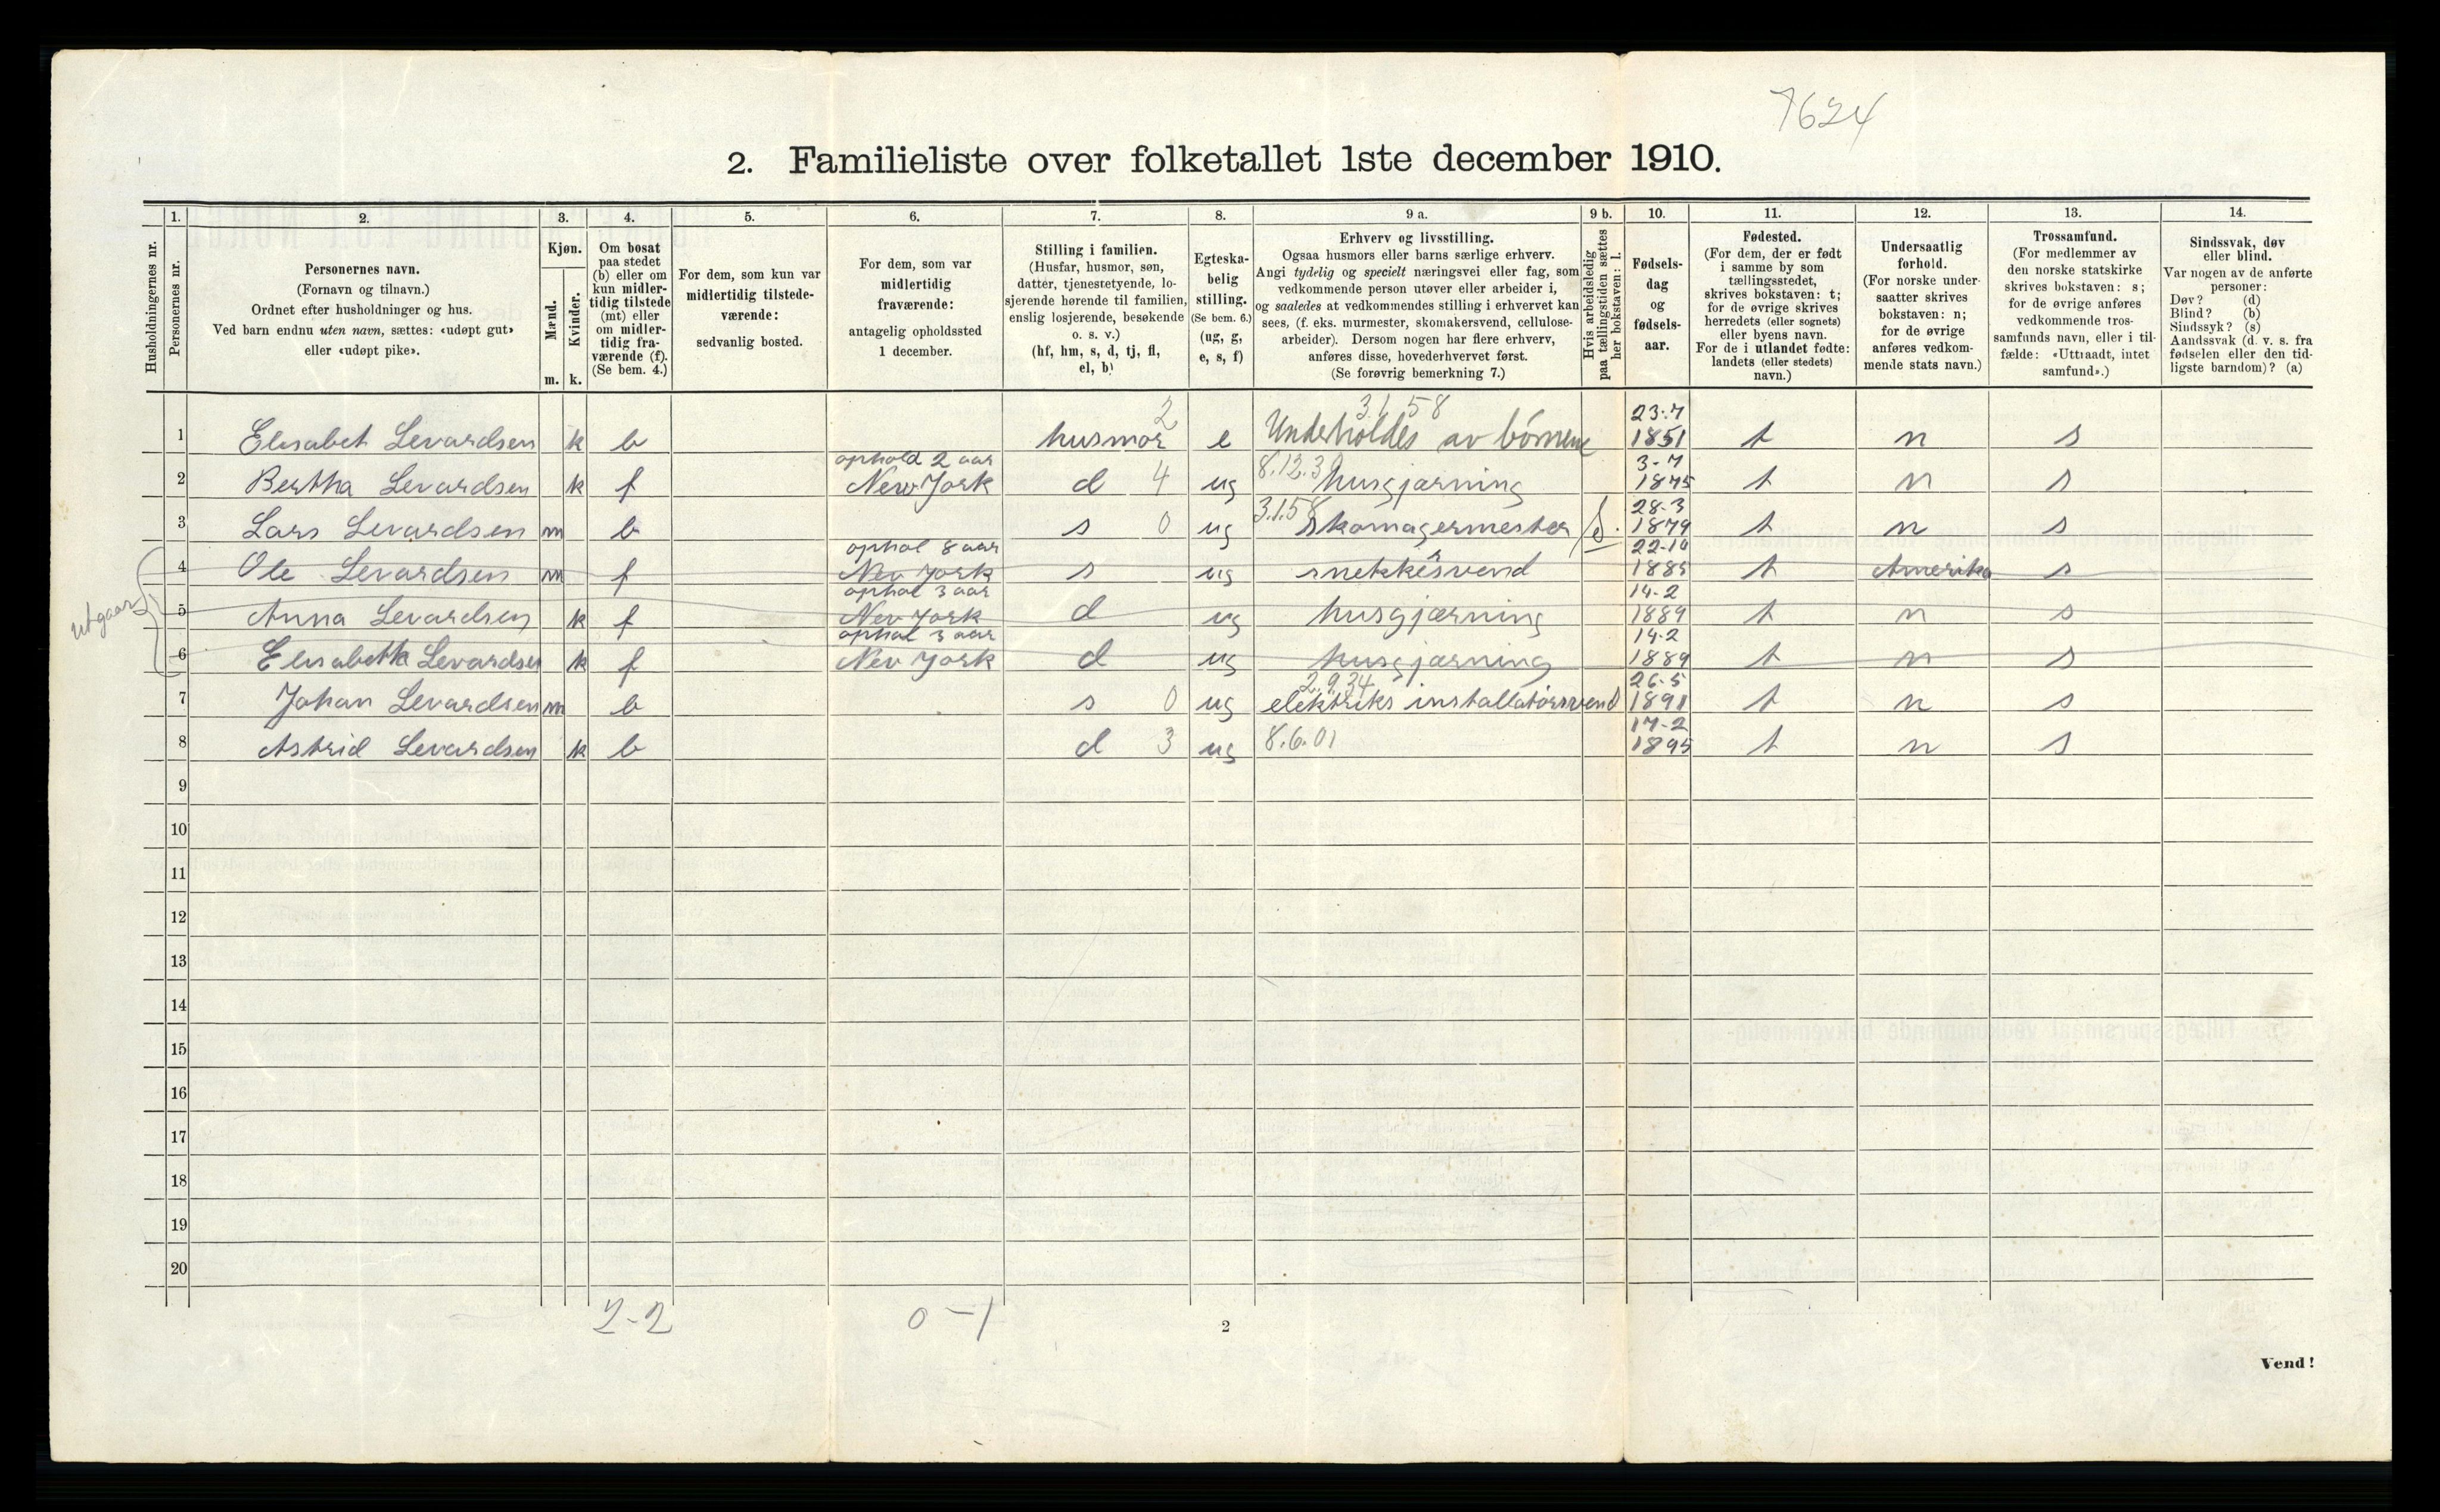 7624
2. Familieliste over folketallet 1ste december 1910.
Husholdningernes nr.
1. Personernes nr.
2. Personernes navn.
(Fornavn og tilnavn.)
Ordnet efter husholdninger og hus.
Ved barn endnu uten navn, sættes: «udøpt gut»
eller «udøpt pike».
3. Kjøn.
Mænd. m.
Kvinder. k.
4. Om bosat
paa stedet
(b) eller om
kun midler-
tidig tilstede
(mt) eller
om midler-
tidig fra-
værende (f).
(Se bem. 4.)
5. For dem, som kun var
midlertidig tilstede-
værende:
sedvanlig bosted.
6. For dem, som var
midlertidig
fraværende:
antagelig opholdssted
1 december.
7. Stilling i familien.
(Husfar, husmor, søn,
datter, tjenestetyende, lo-
sjerende hørende til familien,
enslig losjerende, besøkende
o. s. v.)
(hf, hm, s, d, tj, fl,
el, b)
8. Egteska-
belig
stilling.
(Se bem. 6.)
(ug, g,
e, s, f)
9 a. Erhverv og livsstilling.
Ogsaa husmors eller barns særlige erhverv.
Angi tydelig og specielt næringsvei eller fag, som
vedkommende person utøver eller arbeider i,
og saaledes at vedkommendes stilling i erhvervet kan
sees, (f. eks. murmester, skomakersvend, cellulose-
arbeider). Dersom nogen har flere erhverv,
anføres disse, hovederhvervet først.
(Se forøvrig bemerkning 7.)
9 b. Hvis arbeidsledig
paa tællingstiden sættes
her bokstaven: l.
10. Fødsels-
dag
og
fødsels-
aar.
11. Fødested.
(For dem, der er født
i samme by som
tællingsstedet,
skrives bokstaven: t;
for de øvrige skrives
herredets (eller sognets)
eller byens navn.
For de i utlandet fødte:
landets (eller stedets)
navn.)
12. Undersaatlig
forhold.
(For norske under-
saatter skrives
bokstaven: n;
for de øvrige
anføres vedkom-
mende stats navn.)
13. Trossamfund.
(For medlemmer av
den norske statskirke
skrives bokstaven: s;
for de øvrige anføres
vedkommende tros-
samfunds navn, eller i til-
fælde: «Uttraadt, intet
samfund».)
14. Sindssvak, døv
eller blind.
Var nogen av de anførte
personer:
Døv? (d)
Blind? (b)
Sindssyk? (s)
Aandssvak (d. v. s. fra
fødselen eller den tid-
ligste barndom)? (a)
1 Elisabet Levardsen k b husmor 2 e 3.1.58 Underholdes av børnene 23-7 1851 t n s
2 Bertha Levardsen k f ophold 2 aar New York d 4 ug 8.12.3 husgjærning 3-7 1875 t n s
3 Lars Levardsen m b s 0 ug 3.1.58 skomagermester 28-3 1879 t n s
4 Ole Levardsen m f ophol 8 aar Nev York s ug snekkersvend 22-10 1885 t Amerika s
utgaar
5 Anna Levardsen k f ophol 3 aar Nev York d ug husgjærning 14-2 1889 t n s
6 Elisabeth Levardsen k f ophol 3 aar Nev York d ug husgjærning 14-2 1889 t n s
7 Johan Levardsen m b s 0 ug 2.9.34 elektriks installatørsvend 26-5 1891 t n s
8 Astrid Levardsen k b d 3 ug 8.6.01 17-2 1895 t n s
9
10
11
12
13
14
15
16
17
18
19
20
2-2 0-1
2
Vend!